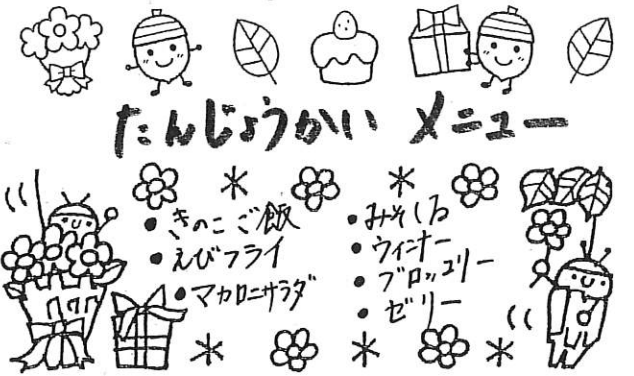 たんじょうかい メニュー
・きのこご飯
・えびフライ
・マカロニサラダ
・みそしる
・ウィンナー
・ブロッコリー
・ゼリー